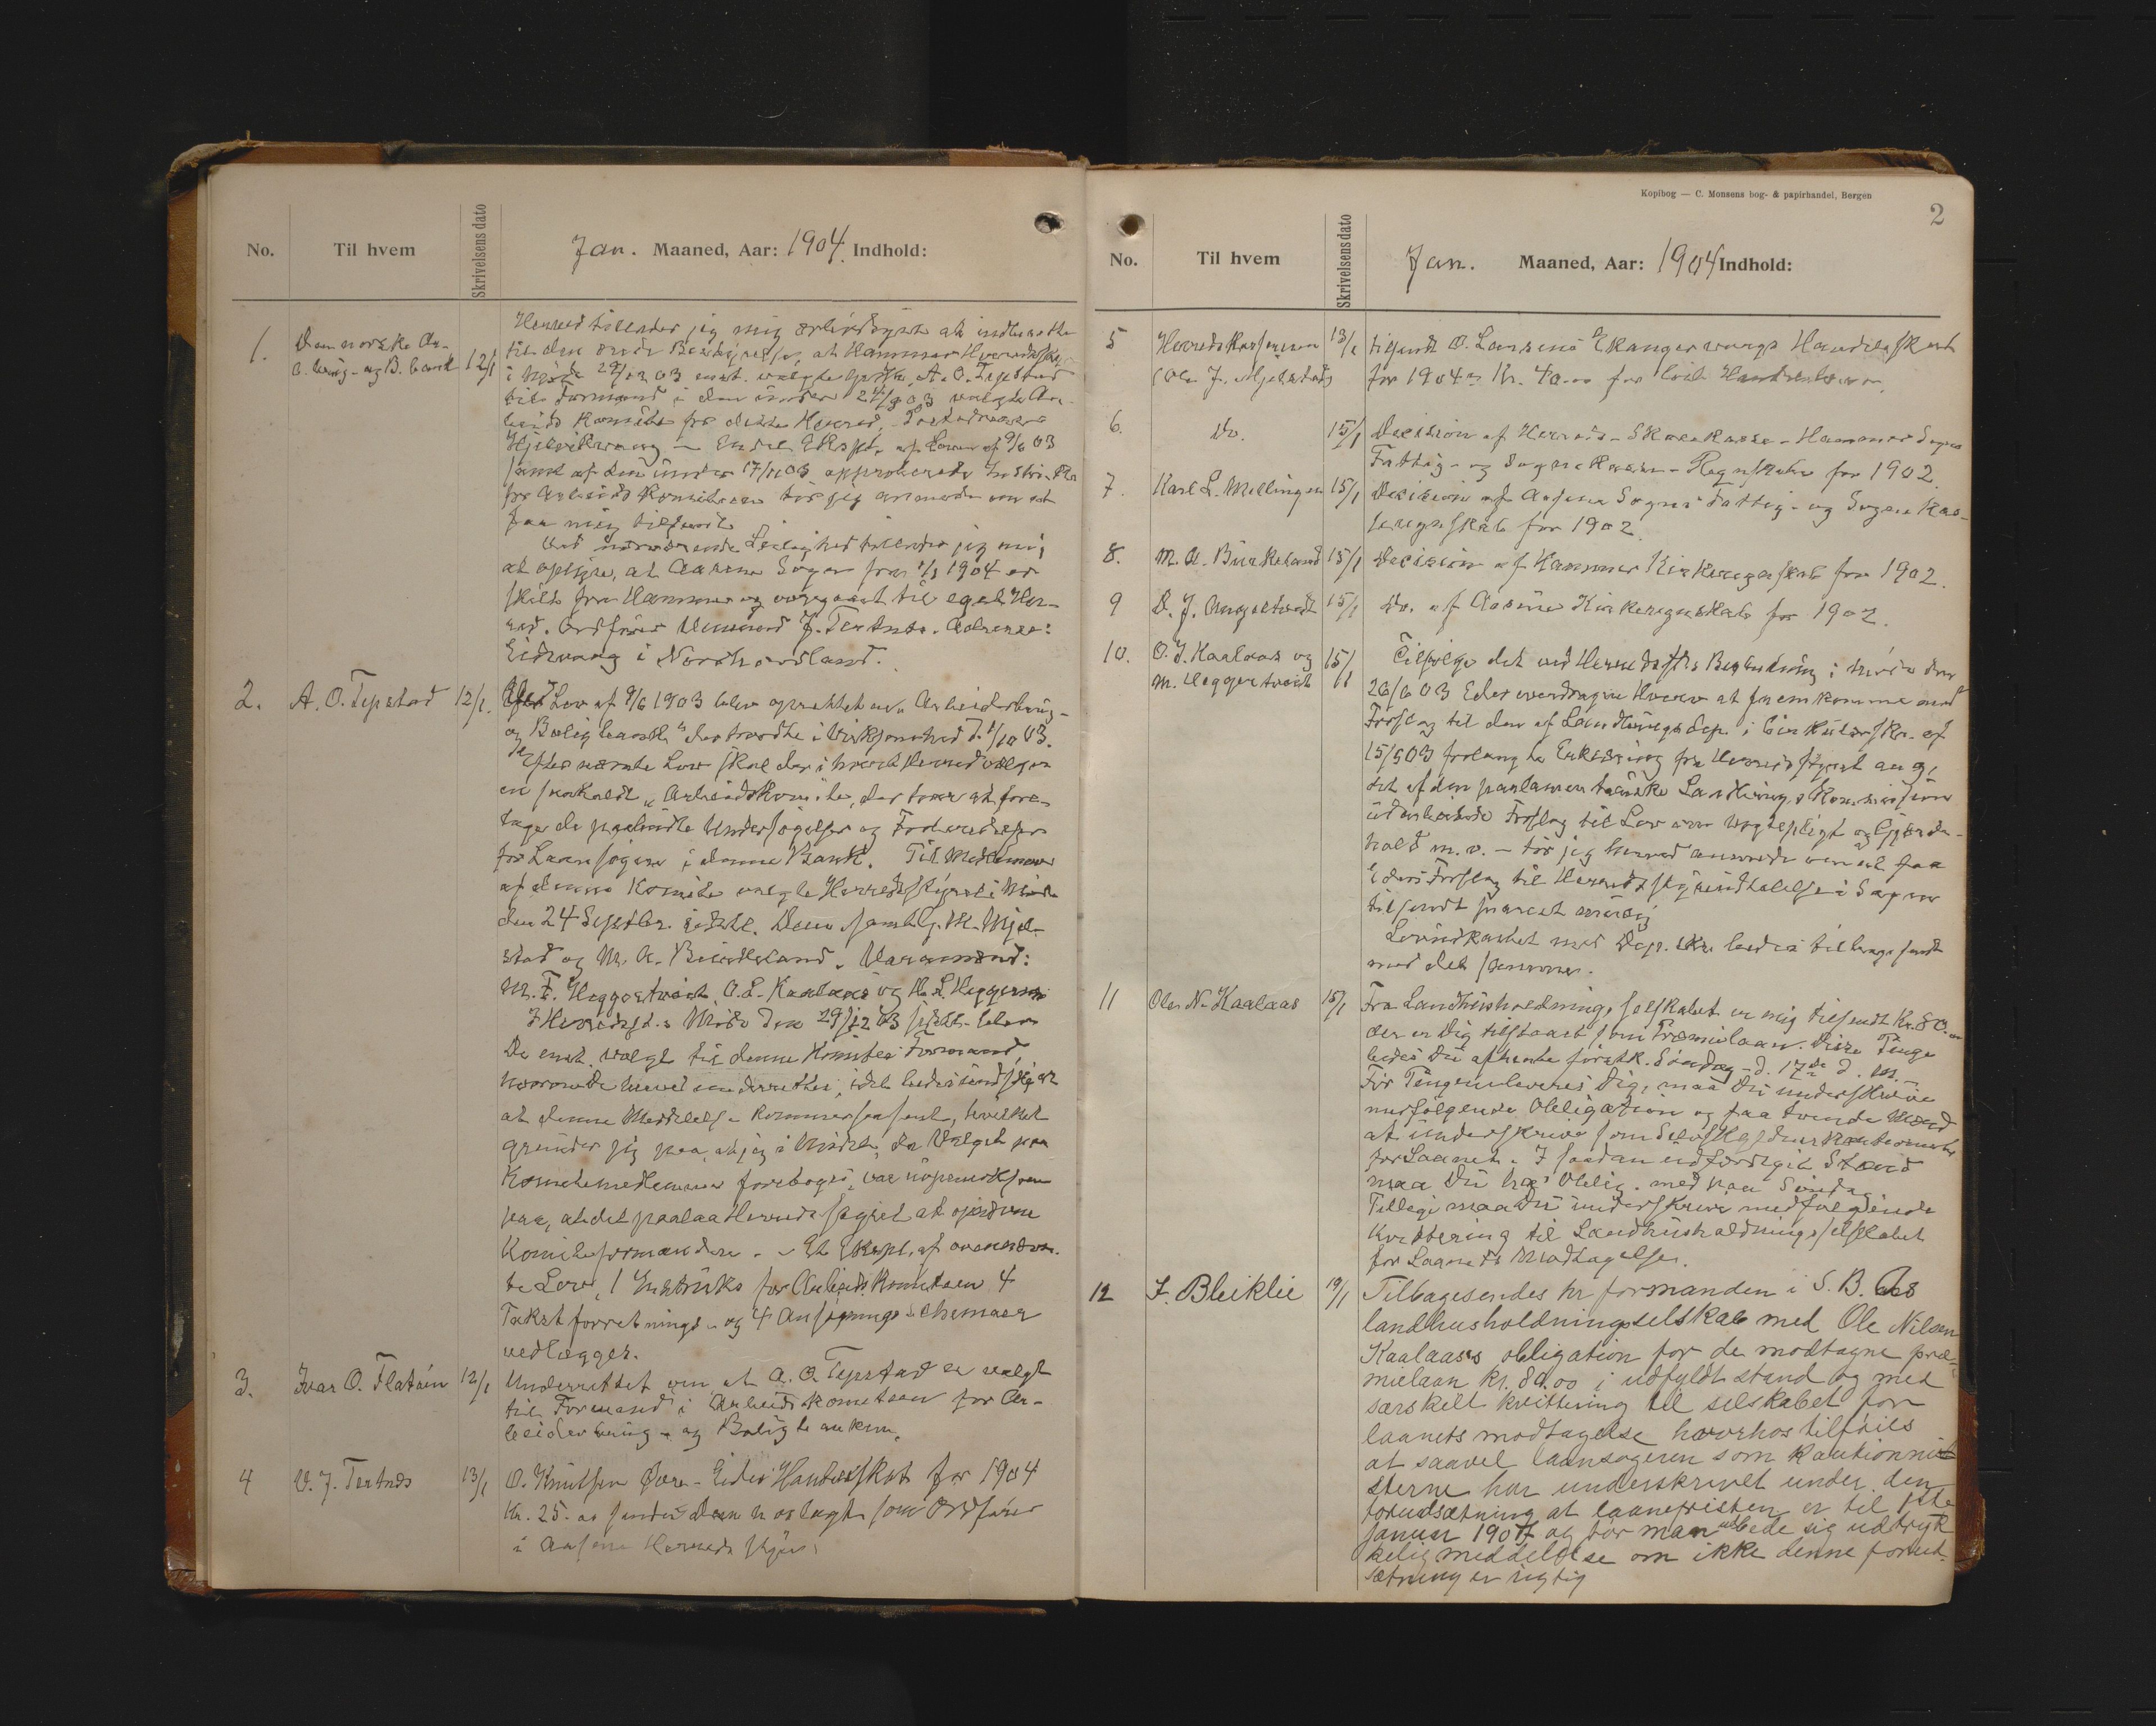 No.
Til hvem
Skrivelsens dato
Jan. Maaned, Aar: 1904 Indhold:
1.
Den norske Ar-
b.brug- og B. bank
12/1
Herved tillader jeg mig ærbødigst at indberette
til den ærede Bestyrelse, at Hammer Herredssty.
i Møde 29/12 03 enst. valgte A. O. Tepstad
til Formand i den under 24/9 03 valgte Ar-
beids Komite for dette Herred,
Hjelvikvaag - Endel Ekspl. af Loven af 9/6 03
samt af den under 17/11 03 approberede Instruks
for Arbeidskomiteen tør jeg anmode om at
faa mig tilsendt
Ved nærværende Leilighed tillader jeg mig
at oplyse, at Aasene Sogn fra 1/1 1904 er
skilt fra Hammer og overgaaet til eget Her-
red. Ordfører J. Tertnæs. Adresse:
Eidsvaag i Nordhordland.
2.
A. O. Tepstad
12/1.
Ved Lov af 9/6 1903 blev oprettet en "Arbeiderbrug-
og Boligbank" der traadte i Virksomhed d. 1/10 03.
Efter nævnte Lov skal der i hvert Herred vælges
en saakaldt "Arbeidskomite, der har at fore-
tage de paabudte Undersøgelser og
for Laansøgere i denne Bank. Til Medlemmer
af denne Komite valgte Herredsstyret i Møde
den 24 Septbr. sidstl. Dem samt M. Mjel-
stad og M. A. Birkeland. Varamænd:
M. F. Heggertveit, O. L. Kaalaas og H. L. Heggernes
I Herredsst.s Møde den 29/12 03 sidstl. blev
De enst. valgt til denne Komites Formand,
hvorom De herved underrettes, idet
at denne Meddelelse kommer saa sent, hvilket
grunder sig paa, at jeg i Mødet, da Valget paa
Komitemedlemmer foretoges, var uopmerksom
paa, at det paalaa Herredsstyret at opnævne
Komiteformanden. - Et Ekspl. af ovennævn-
te Lov, 1 Instruks for Arbeids Komiteen 4
Takstforretnings- og 4 Ansøgnings-Schemaer
vedlægges.
3.
Ivar O. Flatøen
12/1
Underrettet om at A. O. Tepstad er valgt
til Formand i Arbeidskomiteen for Ar-
beiderbrug- og Boligbanken.
4
O. J. Tertnæs
13/1
O. Knutsen Øvre-Eides Handelsskat for 1904
Kr. 25.00 sendes Dem som Ordfører
i Aasene Herredsstyre.
Kopibog — C. Monsens bog- & papirhandel, Bergen
2
No.
Til hvem
Skrivelsens dato
Jan. Maaned, Aar: 1904 Indhold:
5
Herredskassereren
13/1
tilsendt O. Larsens Ekangervaags Handelsskat
(Ole J. Mjelstad)
for 1904 Kr. 40.00
6.
Do.
15/1
Decision af Herreds- Skolekasse- Hammer Sogns
Fattig- og Sognekasse- Regnskaber for 1902.
7.
Karl L. Mellingen
15/1
Decision af Aasene Sogns Fattig- og Sogne Kas-
seregnskab for 1902.
8.
M. A. Birkeland
15/1
Decision af Hammer Kirkeregnskab for 1902.
9
D. J. Angeltveit
15/1
Do. af Aasene Kirkeregnskab for 1902.
10.
O. J. Kaalaas og
15/1
Tilfølge det ved Herredsst.s Beslutning i Møde den
M. Heggertveit
26/6 03 Eder overdragne Hverv at fremkomme med
Forslag til den af Landbrugsdep. i Cirkulærskr. af
15/5 03 forlangte Erklæring fra Herredsstyret ang.
det af den parlamentariske Landbrugskommission
udarbeidede Forslag til Lov om Vogtepligt og Gjerde-
hold m. v. - tør jeg herved anmode om at faa
Eders Forslag til Herredsstyreudtalelse i Sagen
tilsendt snarest muligt
Lovudkastet med Dep. skr. bedes tilbagesendt
med det samme.
11
Ole N. Kaalaas
15/1
Fra Landhusholdningsselskabet er mig tilsendt Kr. 80.00
der er Dig tilstaaet som Præmielaan. Disse Penge
bedes Du afhente førstk. Søndag d. 17de d. M.
Før Pengene leveres Dig, maa Du underskrive
medfølgende Obligation og faa tvende Mænd
at underskrive som Selvskyldnerkautionister
for Laanet. I saadan udfærdiget Stand
maa Du ha' Oblig. med paa Søndag
Tillige maa Du underskrive medfølgende
Kvittering til Landhusholdningsselskabet
for Laanets Modtagelse.
12
J. Bleiklie
19/1
Tilbagesendes hr formanden i S. B. As
landhusholdningsselskab med Ole Nilsen
Kaalaas's obligation for de modtagne præ-
mielaan kr. 80.00 i udfyldt stand og med
særskilt kvittering til selskabet for
laanets modtagelse hvorhos tilføies
at saavel laansøgeren som kautionni-
sterne har underskrevet under den
forudsætning at laanefristen er til 1ste
Januar 1907 og tør man udbede sig udtryk
kelig meddelelse om ikke denne forud-
sætning er rigtig